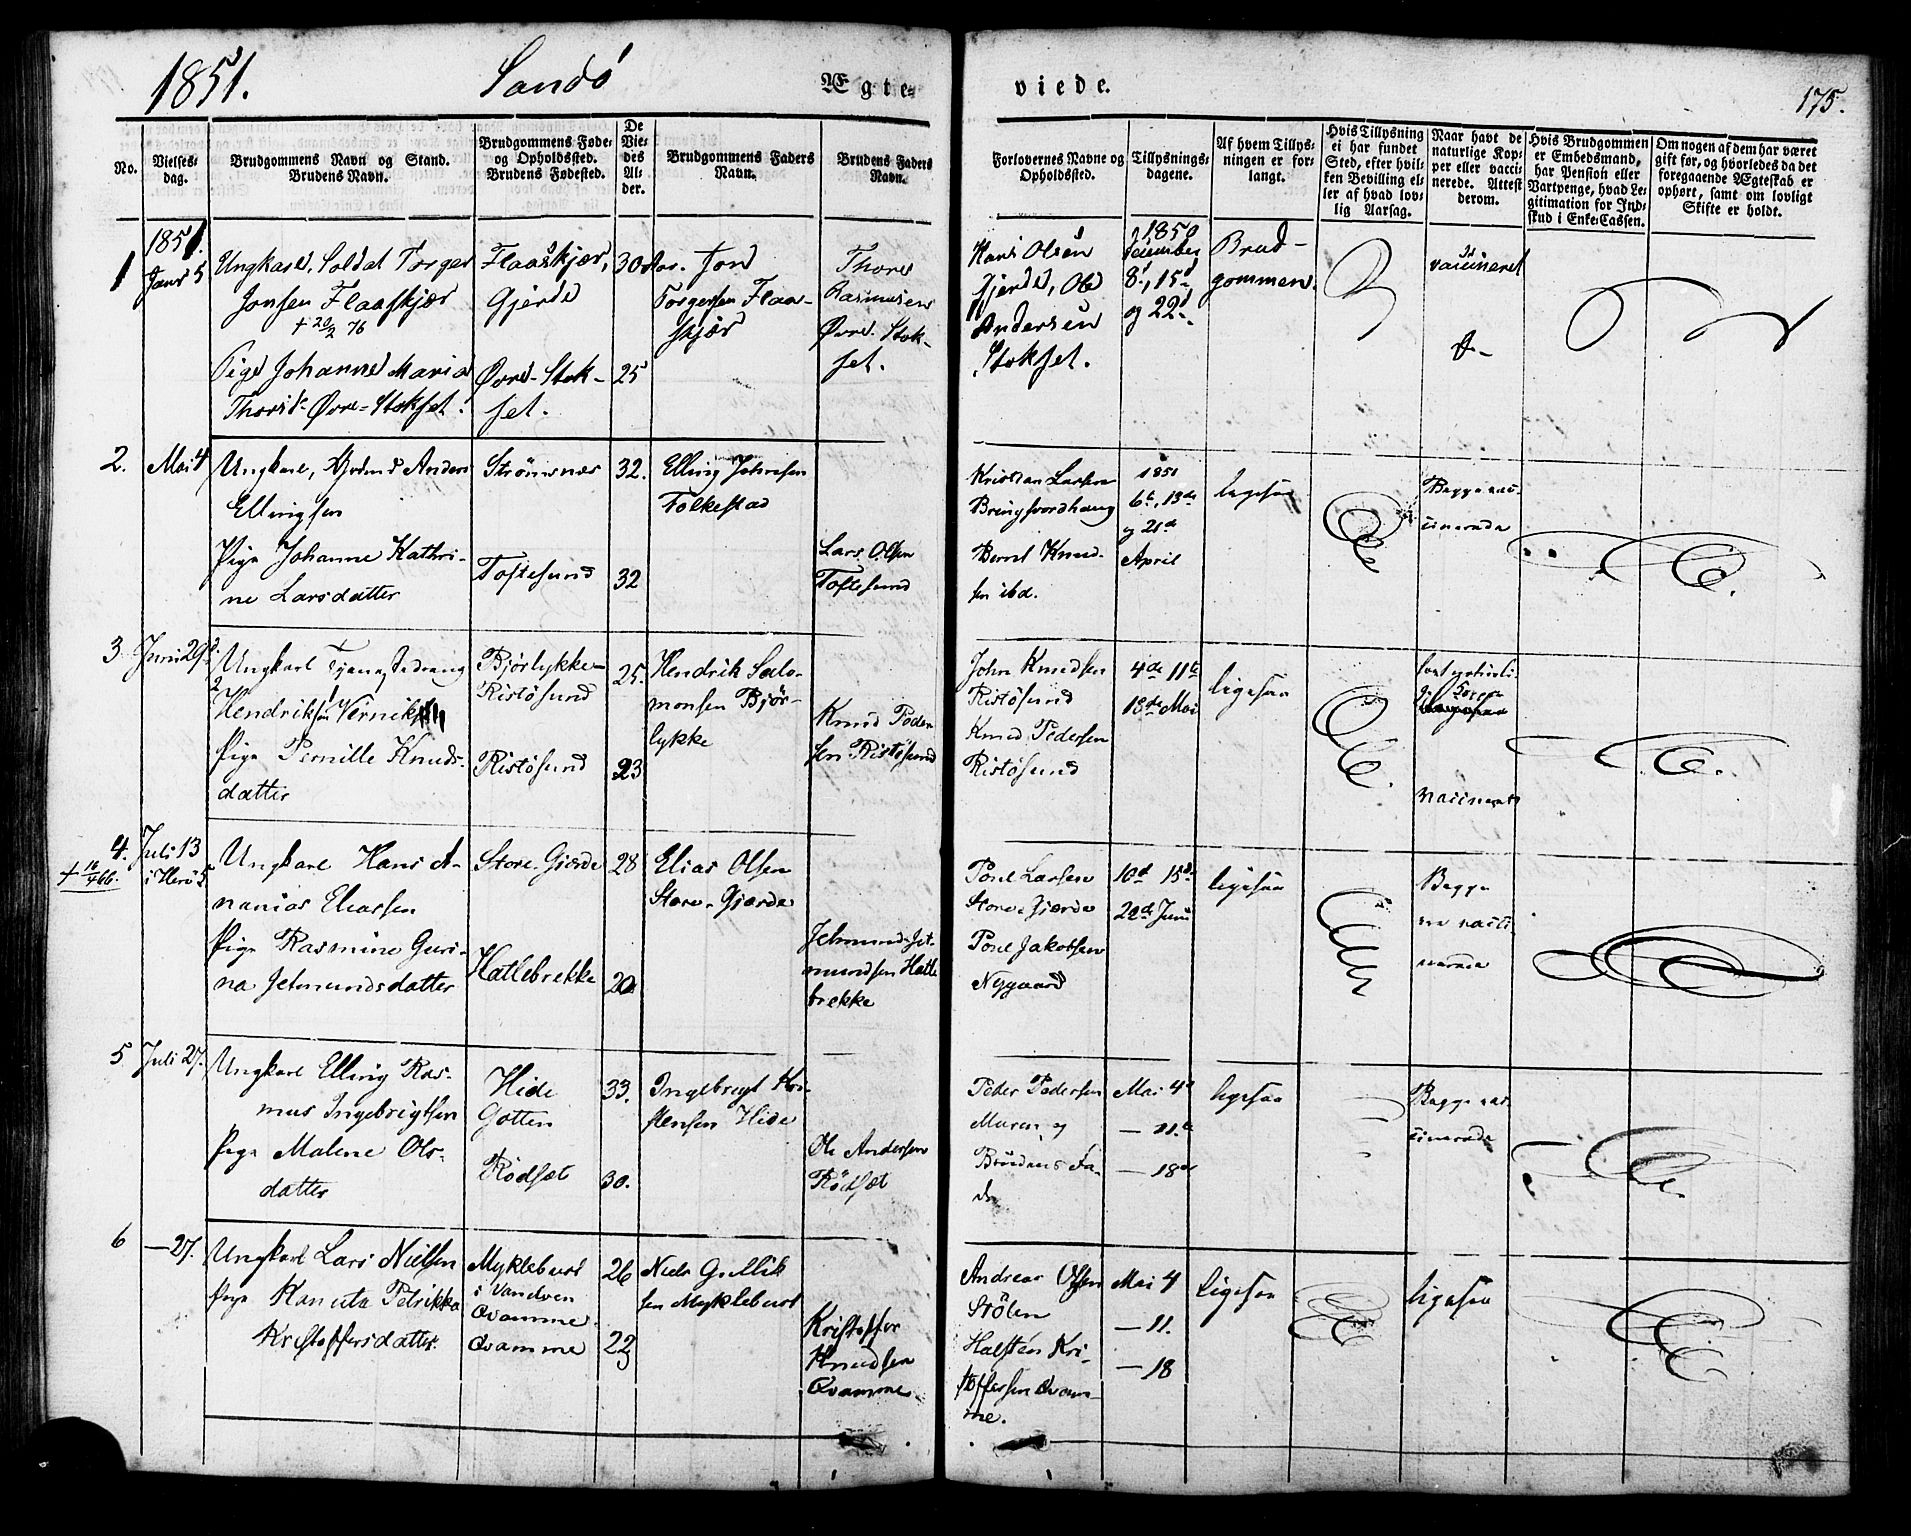 1851. Sandö Ægte-
viede. 175.
No.
Vielses-
dag.
Brudgommens Navn og Stand.
Brudens Navn.
Brudgommens Føde-
og Opholdssted.
Brudens Fødested.
De
Vie-
des
Al-
der.
Brudgommens Faders
Navn.
Brudens Faders
Navn.
Forlovernes Navne og
Opholdssted.
Tillysnings-
dagene.
Af hvem Tillys-
ningen er for-
langt.
Hvis Tillysning
ei har fundet
Sted, efter hvil-
ken Bevilling el-
ler af hvad lov-
lig Aarsag.
Naar havt de
naturlige Kop-
per eller vacci-
nerede. Attest
derom.
Hvis Brudgommen
er Embedsmand,
har Pension eller
Vartpenge, hvad Le-
gitimation for Ind-
skud i Enke-Cassen.
Om nogen af dem har været
gift før, og hvorledes da det
foregaaende Ægteskab er
ophørt, samt om lovligt
Skifte er holdt.
1
1851.
Janr 5
Ungkarl, Soldat Torger
Jonsen Flaaskjær
+ 20/2 76
Pige Johanne Maria
Thorsd. Øvre-Stokset.
Flaaskjær,
Gjerde
Øvre-Stok-
set.
30
25
Jon
Torgersen Flaa-
skjær
Thore
Rasmusen
Øvre-Stok-
set.
Hans Olsen
Gjerde, Ole
Andersen
Stokset.
1850
8d, 15d,
og 22d
Brud-
gommen.
vaccineret
2.
Mai 4
Ungkarl, Anders
Ellingsen
Pige Johanne Kathri-
ne Larsdatter
Strömsnes
Toftesund
32.
32
Elling Johnsen
Folkestad
Lars Olsen
Toftesund
Kristian Larsen
Bringsvordhaug
Bernt Knud-
sen ibd.
1851
6te, 13de
og 21de
April
ligesaa
Begge vac-
cinerede
3
Juni 29
Ungkarl
Hendriksen
Pige Pernille Knuds-
datter
Bjørlykke-
Ristösund
Ristösund
25.
23
Hendrik Salo-
monsen Bjør-
lykke
Knud Peder
sen Ristösund
John Knudsen
Ristösund
Knud Pedersen
Ristösund
4de 11te
18de Mai
ligesaa
vaccineret
4.
+ 16/4 66.
Juli 13
i Herö
Ungkarl Hans A-
nanias Eliassen
Pige Rasmine Guri-
na Jetmundsdatter
Store-Gjærde
Hatlebrekke
28
20
Elias Olsen
Store-Gjærde
Jetmund Jet-
mundsen Hatle
brekke
Poul Larsen
Store-Gjærde
Poul Jakobsen
Nygaard
10d 15d
22de Juni
ligesaa
Begge
ere vacci-
nerede
5
Juli 27.
Ungkarl Elling Ras-
mus Ingebrigtsen
Pige Malene Ols-
datter
Hide
Gotten
Rödsæt
33.
30.
Ingebrigt Kri-
stensen Hide
Ole Andersen
Rödsæt
Peder Pedersen
Muren og
Brudens Fa-
der
Mai 4d
— 11te
— 18de
ligesaa
Begge vac-
cinerede
6
— 27.
Ungkarl Lars Nielsen
Pige Kanuta Petrikka
Kristoffersdatter.
Myklebust
i Vandven
Qvamme.
Qvamme
26
22
Niels Gullik
sen Myklebust
Kristoffer
Knudsen
Qvamme
Andreas Olsen
Stölen
Halsten Kri-
stoffersen Qvam-
me.
Mai 4
— 11.
— 18
ligesaa
ligesaa